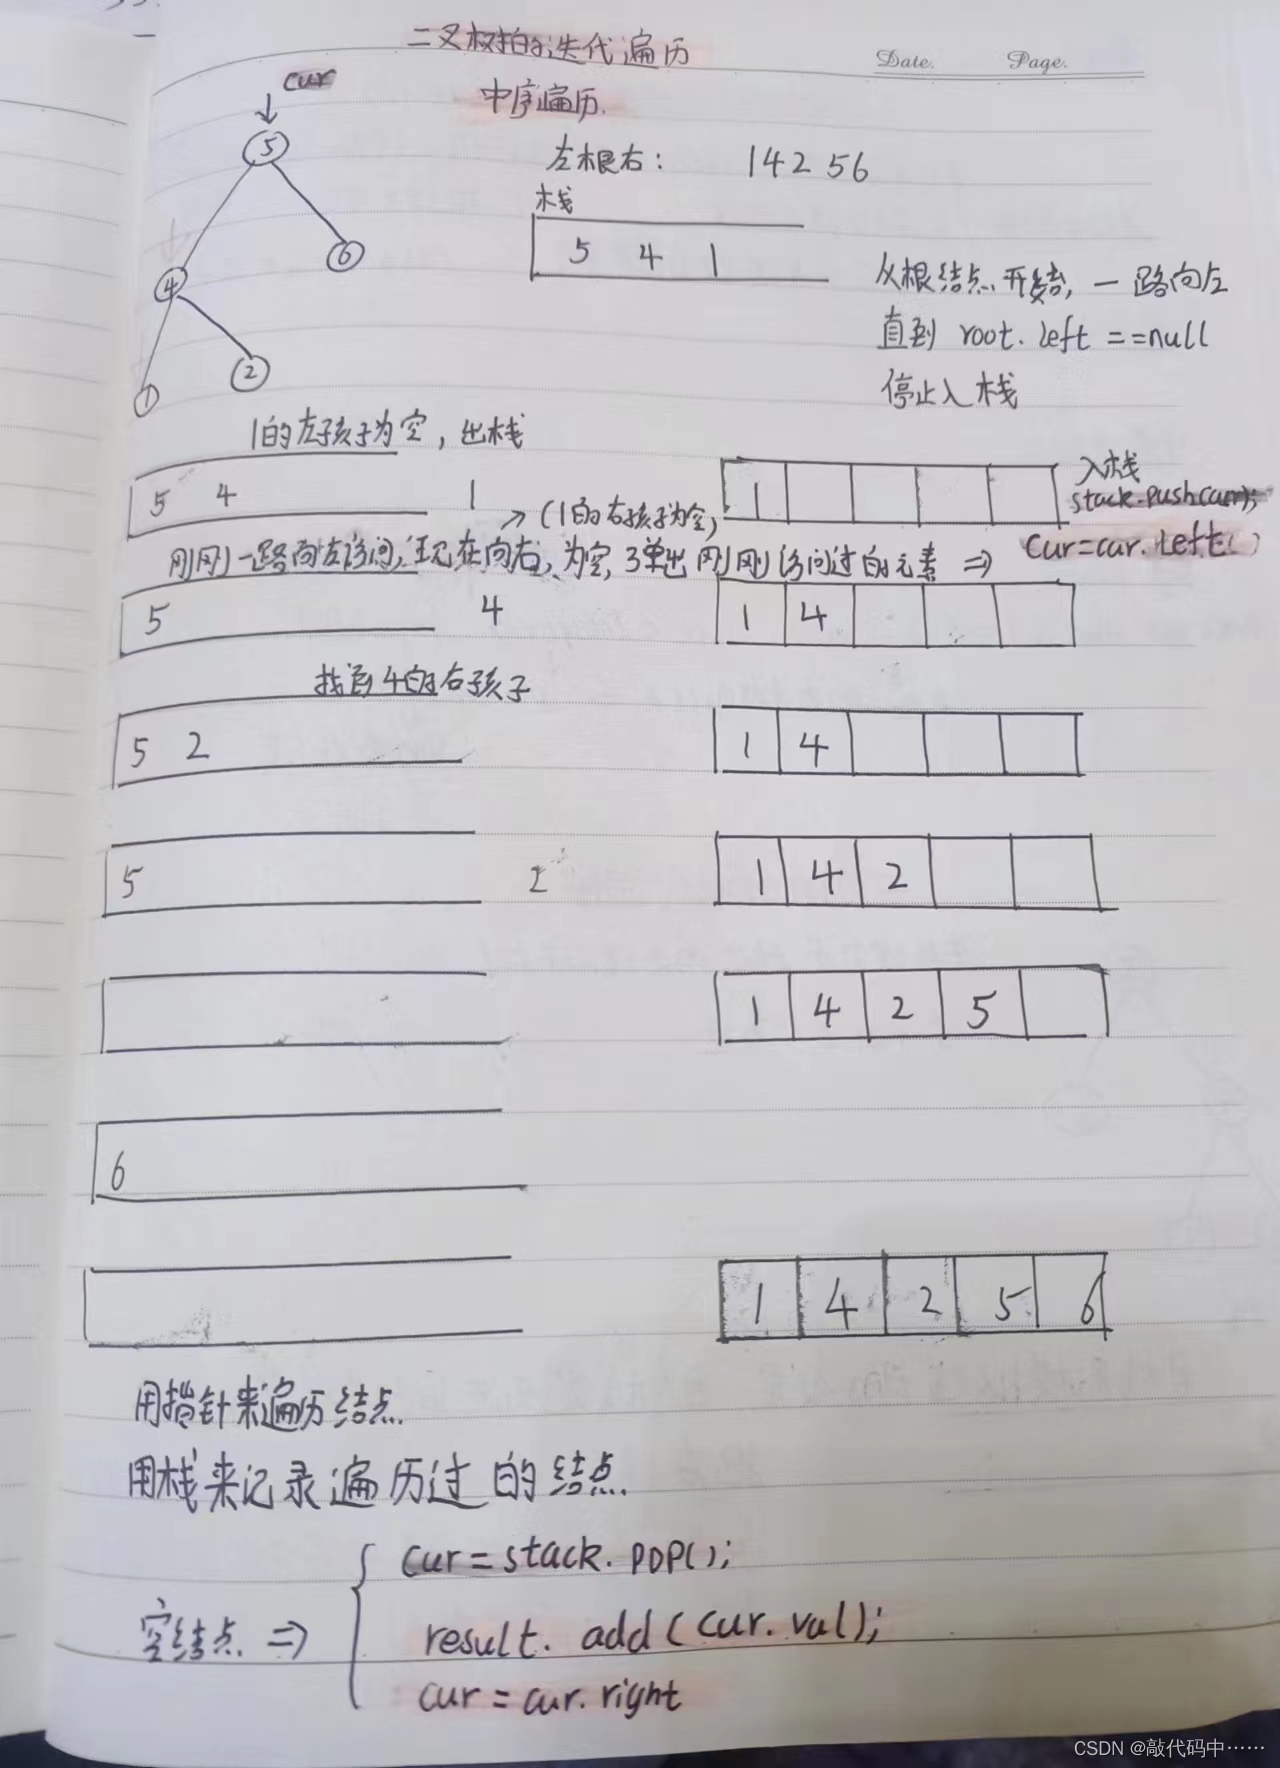 二叉树的迭代遍历
Date. Page.
cur
中序遍历.
5
左根右: 14256
栈
6
5 4 1
从根结点开始, 一路向左
4
直到 root. left ==null
2
停止入栈
1
1的左孩子为空, 出栈
5 4 1
1
入栈
→ (1的右孩子为空)
stack.push(cur);
cur=cur.left()
刚刚一路向左访问, 现在向右, 为空, 弹出刚刚访问过的元素 ⇒
5 4
1 4
找到4的右孩子
5 2
1 4
5 2
1 4 2
1 4 2 5
6
1 4 2 5 6
用指针来遍历结点.
用栈来记录遍历过的结点.
cur=stack.pop();
空结点 ⇒ result. add(cur.val);
cur=cur.right
CSDN @敲代码中……